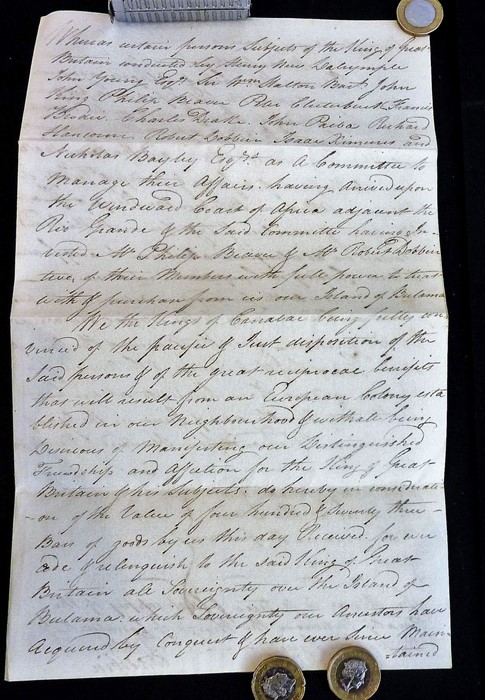 Whereas certain persons Subjects of the King of Great
Britain conducted by Henry Hew Dalrymple
John Young Esqr. Sir Wm. Halton Bart. John
King Philip Beaver Peter Clutterbuck Francis
Brodie Charles Drake John Paiba Richard
Hancorne Robert Dobbin Isaac Ximenes and
Nicholas Bayley Esqrs. as a Committee to
Manage their Affairs. having Arrived upon
the Windward Coast of Africa adjacent the
Rio Grande & the Said Committee having In-
vested Mr. Philip Beaver & Mr. Robert Dobbin
two, of their Members with full power to treat
with & purchase from us our Island of Bulama
We the Kings of Canabac being fully con
vinced of the pacific & Just disposition of the
Said persons & of the great reciprocal benefits
that will result from an European Colony esta
blished in our Neighbourhood & withall being
Desirous of Manifesting our Distinguished
Friendship and Affection for the King of Great
Britain & his Subjects. do hereby in consideratio
on of the Value of four hundred & Seventy three
Bars of goods by us this day Received for ever
cede & relinquish to the Said King of Great
Britain all Sovereignty over the Island of
Bulama: which Sovereignty our Ancestors have
Acquired by Conquest & have ever Since Main
-tained